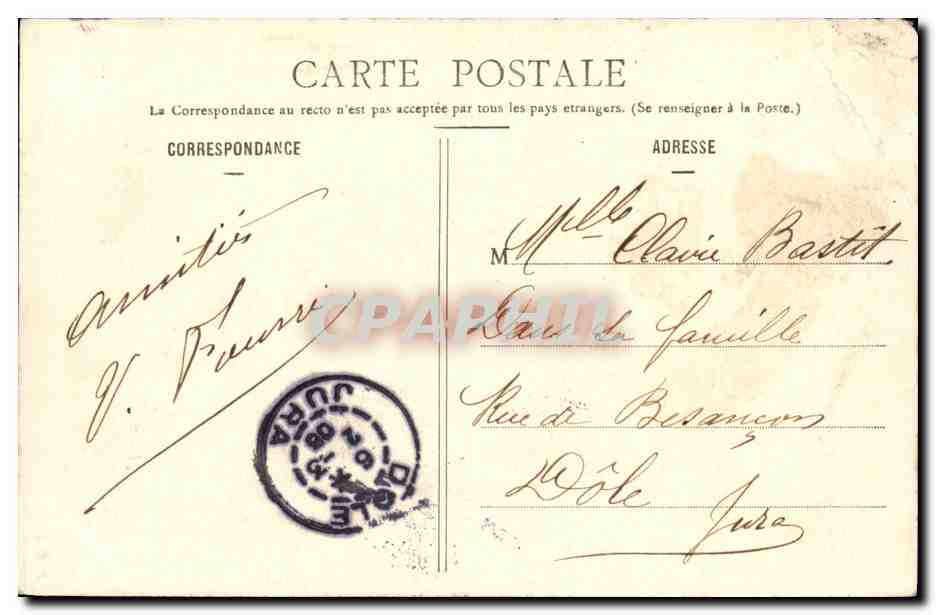 CARTE POSTALE
La Correspondance au recto n'est pas acceptée par tous les pays etrangers. (Se renseigner à la Poste.)
CORRESPONDANCE
amitiés
V.
ADRESSE
M Mlle Claire Bastit
Dans sa famille
Rue de Besançon
Dôle
Jura
CPAPHIL
DOLE
JURA
26
08